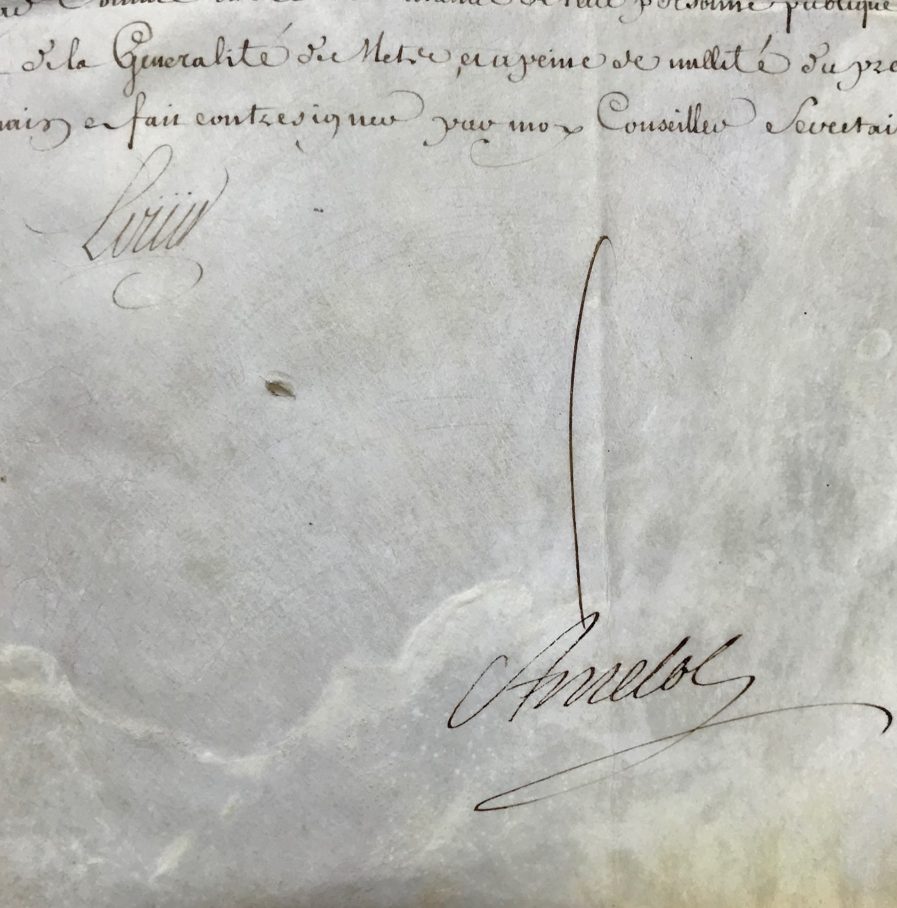 personne publique
de la Generalité de Metz, et a peine de nullité du pre
main et fait contresigner par moy Conseiller Secretai
Louis
Amelot